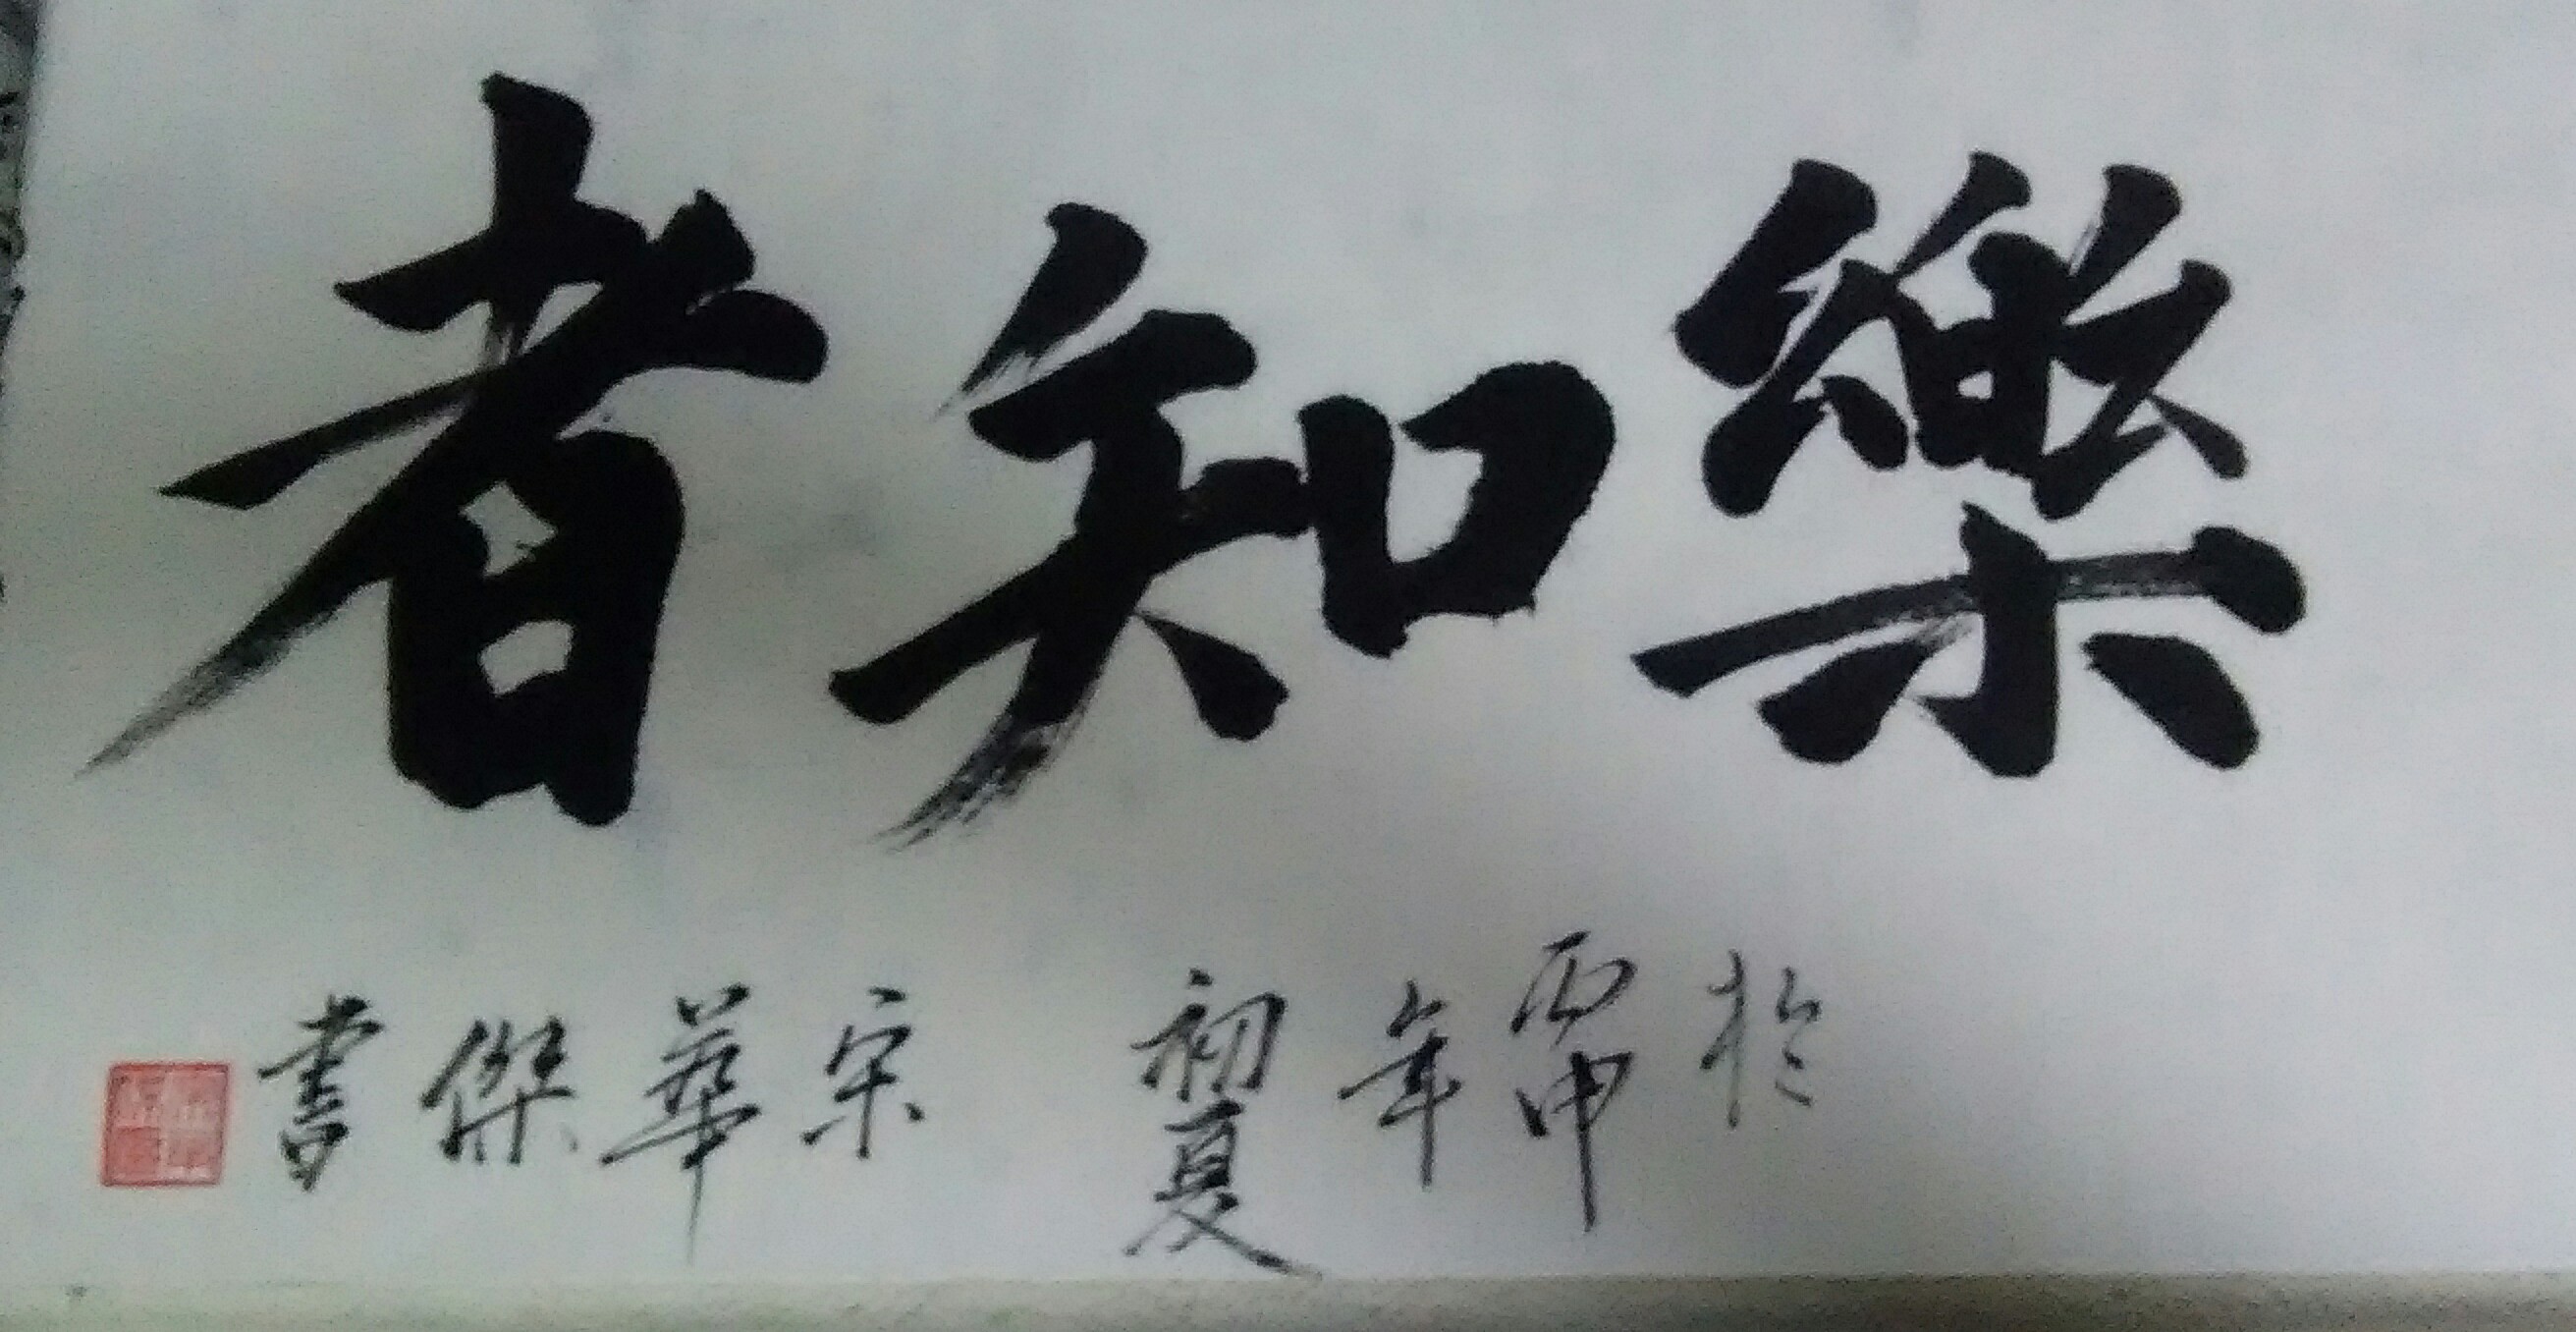 樂知者
於丙申年初夏 宗華傑書